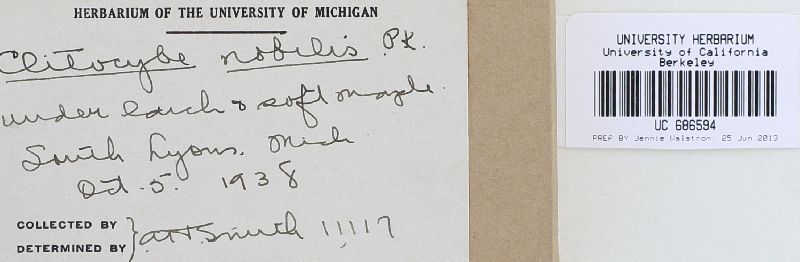 HERBARIUM OF THE UNIVERSITY OF MICHIGAN
Clitocybe nobilis Pk.
under larch & soft maple.
South Lyons. Mich
Oct. 5. 1938
COLLECTED BY
DETERMINED BY } A H Smith 11117
UNIVERSITY HERBARIUM
University of California
Berkeley
UC 686594
PREP BY Jennie Walstrom, 25 Jun 2013